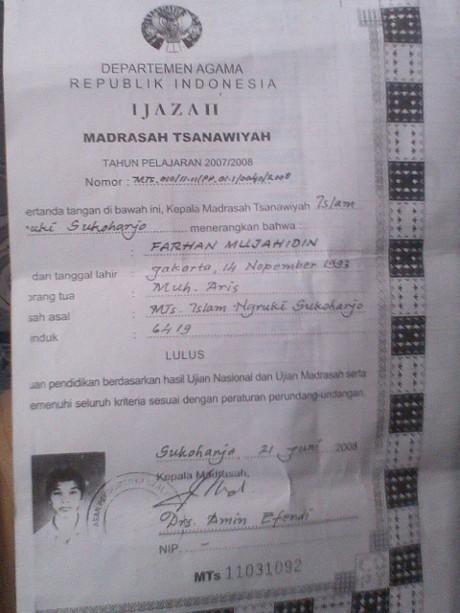 DEPARTEMEN AGAMA
REPUBLIK INDONESIA
IJAZAH
MADRASAH TSANAWIYAH
TAHUN PELAJARAN 2007/2008
Nomor : MTs.010/11.11/PP.01.1/0040/2008
ertanda tangan di bawah ini, Kepala Madrasah Tsanawiyah Islam
ruki Sukoharjo menerangkan bahwa :
: FARHAN MUJAHIDIN
dan tanggal lahir : Jakarta, 14 Nopember 1993
orang tua : Muh. Aris
sah asal : MTs. Islam Ngruki Sukoharjo
induk : 6419
LULUS
uan pendidikan berdasarkan hasil Ujian Nasional dan Ujian Madrasah serta
emenuhi seluruh kriteria sesuai dengan peraturan perundang-undangan.
Sukoharjo, 21 Juni 2008
Kepala Madrasah,
Drs. Amin Efendi
NIP. -
MTs 11031092